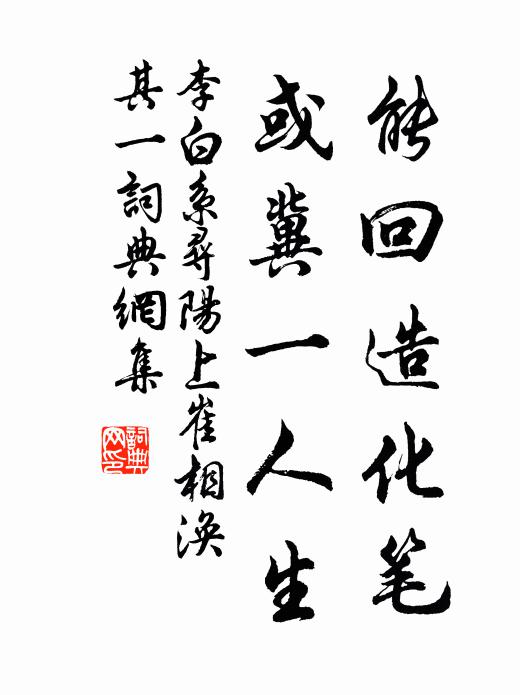 能回造化笔
或冀一人生
李白系尋陽上崔相渙
其一詞典網集
詞典网印